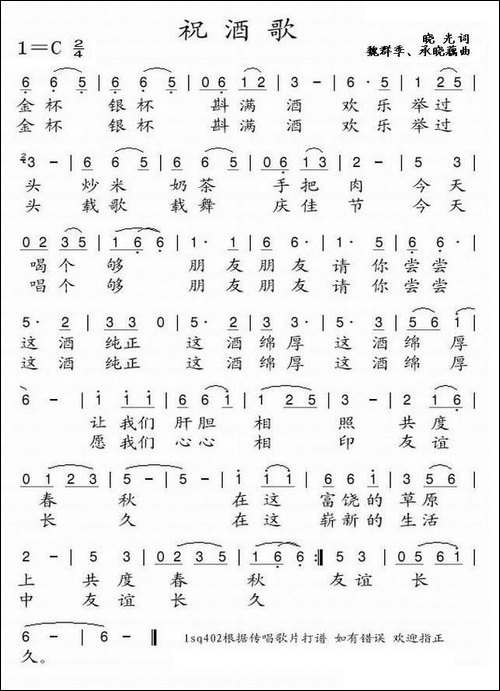 祝酒歌
1=C 2/4
晓光词
魏群季、承晓藕曲
6 6 5 | 6 6 5 | 0 6 1 2 | 3 - | 6 6 5 | 6 6 5 |
金杯 银杯 斟满酒 欢乐举过
金杯 银杯 斟满酒 欢乐举过
3 - | 6 6 5 | 6 6 5 | 0 6 1 3 | 2 - | 5 3 |
头 炒米 奶茶 手把肉 今天
头 载歌 载舞 庆佳节 今天
0 2 3 5 | 1 6 6 | 1· 1 | 6 6· | 1· 1 | 6 6· |
喝个够 朋友朋友请你尝尝
唱个够 朋友朋友请你尝尝
5· 2 | 3 3 0 | 5· 2 | 3 3· | 5· 2 | 5 6 1 |
这酒纯正 这酒绵厚 这酒绵厚
这酒纯正 这酒绵厚 这酒绵厚
6 - | 1 1 1 | 6 6 1 | 1 2 5 | 3· 2 | 1 6 |
让我们肝胆相照共度
愿我们心心相印友谊
0 1 2 3 | 5 - | 5 - | 1 1 1 | 6 6 1 | 3· 5 |
春秋 在这富饶的草原
长久 在这崭新的生活
2 - | 5 3 | 0 2 3 5 | 1 6 6 :‖ 5 3 | 0 5 6 1 |
上 共度春秋 友谊长
中 友谊长久
6 - | 6 - ‖ 1sq402根据传唱歌片打谱 如有错误 欢迎指正
久。